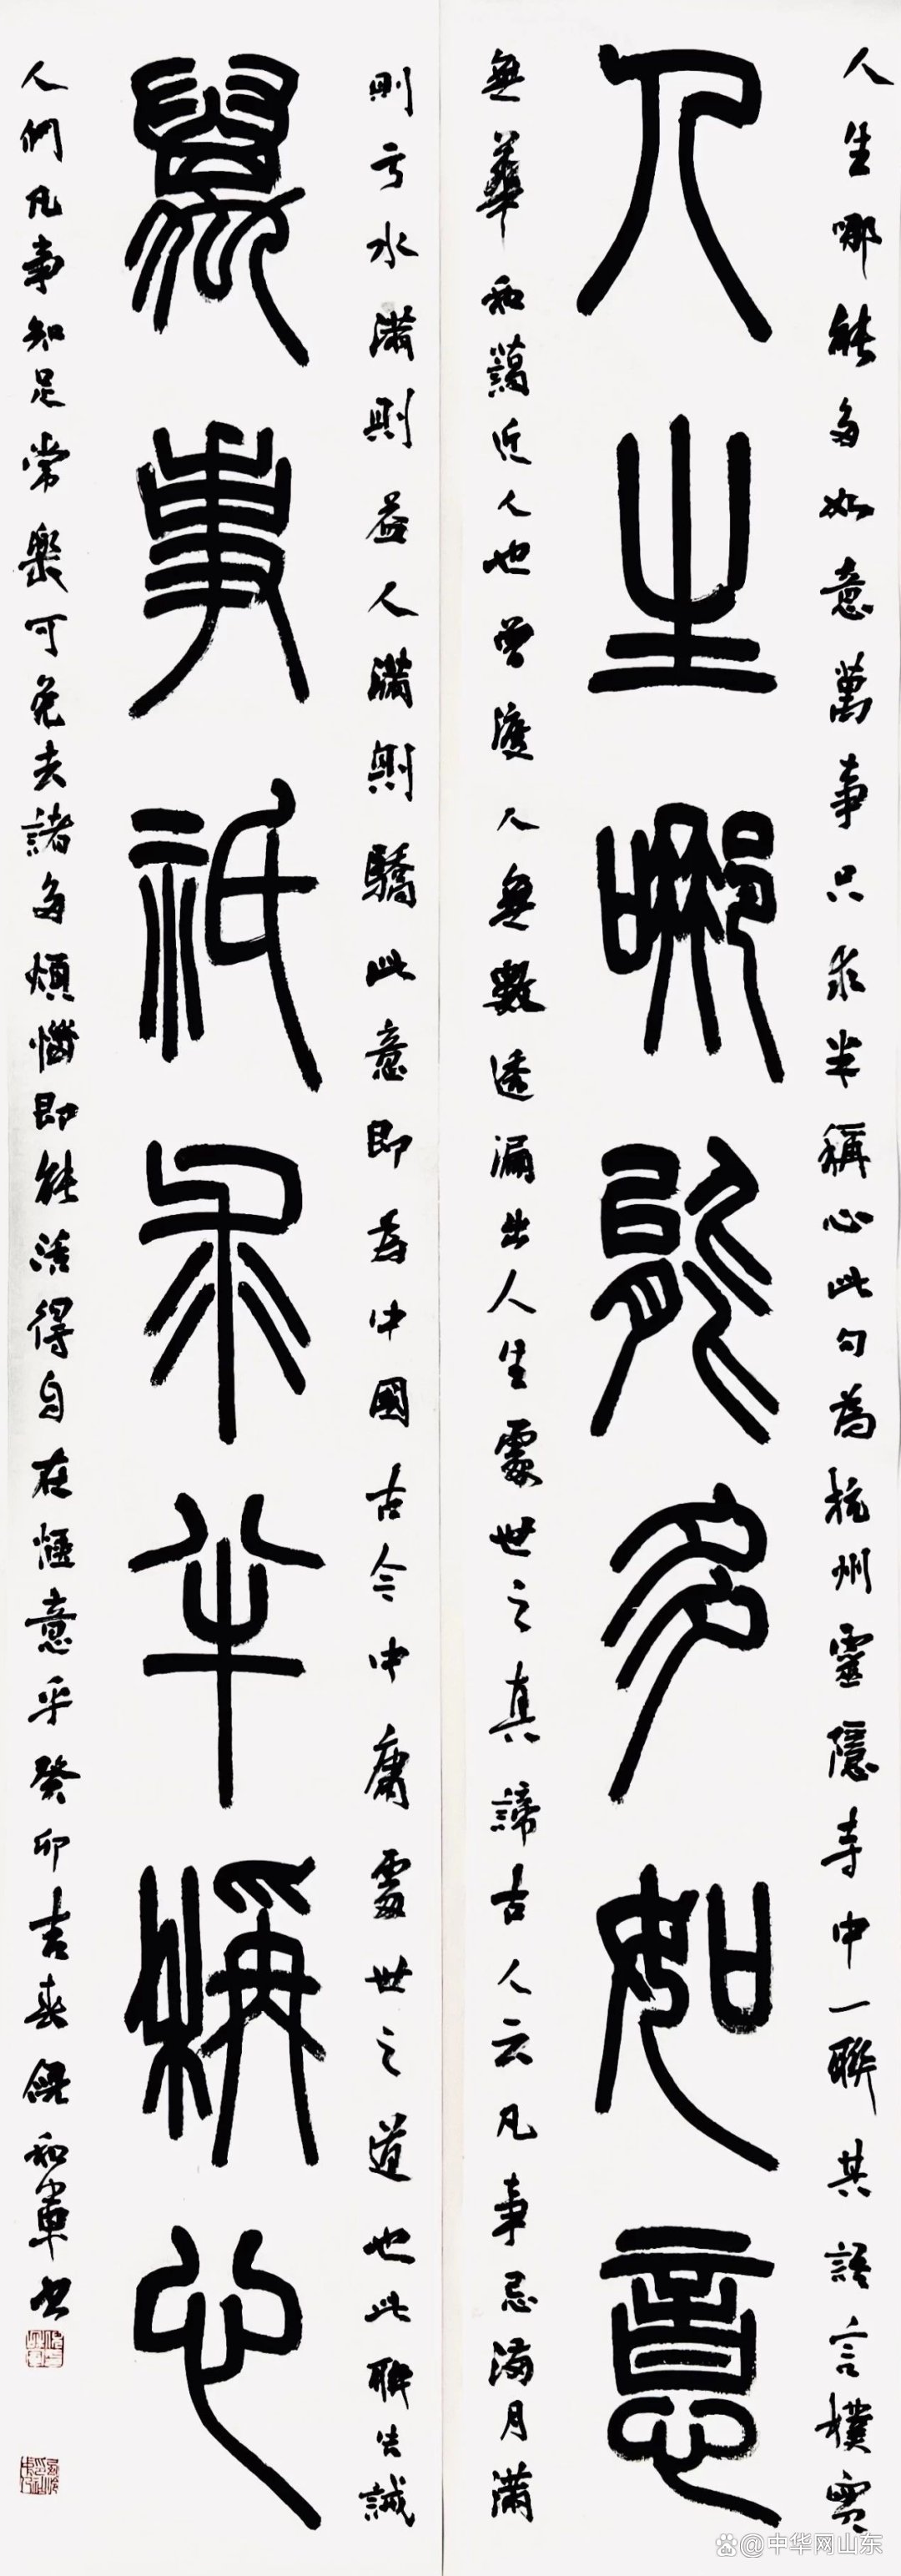 人生哪能多如意萬事只求半稱心此句為杭州靈隱寺中一聯其語言樸實
人生哪能多如意
無華和藹近人也曾渡人無數透漏出人生處世之真諦古人云凡事忌滿月滿
則亏水滿則益人滿則驕此意即為中國古今中庸處世之道也此聯告誡
萬事祇求半稱心
人們凡事知足常樂可免去諸多煩惱即能活得自在愜意乎癸卯吉春倪和軍书
@中华网山东